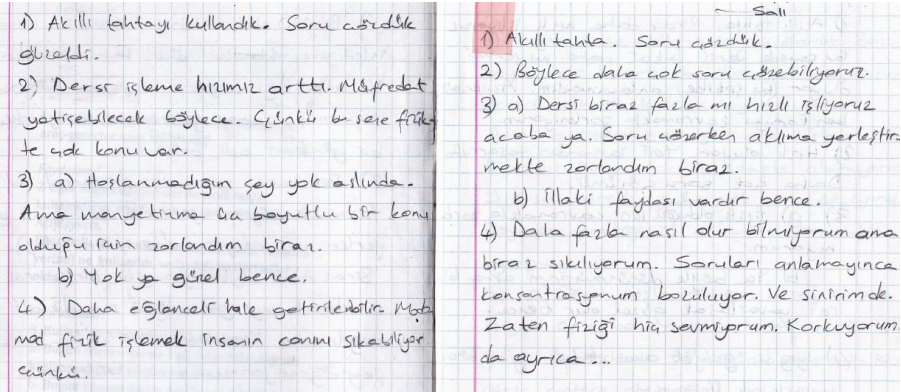 1) Akıllı tahtayı kullandık. Soru çözdük
güzeldi.
2) Dersi işleme hızımız arttı. Müfredat
yetişebilecek böylece. Çünkü bu sene fizik-
te çok konu var.
3) a) Hoşlanmadığım şey yok aslında.
Ama manyetizma üç boyutlu bir konu
olduğu için zorlandım biraz.
b) Yok ya güzel bence.
4) Daha eğlenceli hale getirilebilir.
mot fizik işlemek insanın canını sıkabiliyor
çünkü.
Salı
1) Akıllı tahta. Soru çözdük.
2) Böylece daha çok soru çözebiliyoruz.
3) a) Dersi biraz fazla mı hızlı işliyoruz
acaba ya. Soru çözerken aklıma yerleştir-
mekte zorlandım biraz.
b) İllaki faydası vardır bence.
4) Dala fazla nasıl olur bilmiyorum ama
biraz sıkılıyorum. Soruları anlamayınca
konsantrasyonum bozuluyor. Ve sinirim de.
Zaten fiziği hiç sevmiyorum. Korkuyorum
da ayrıca...